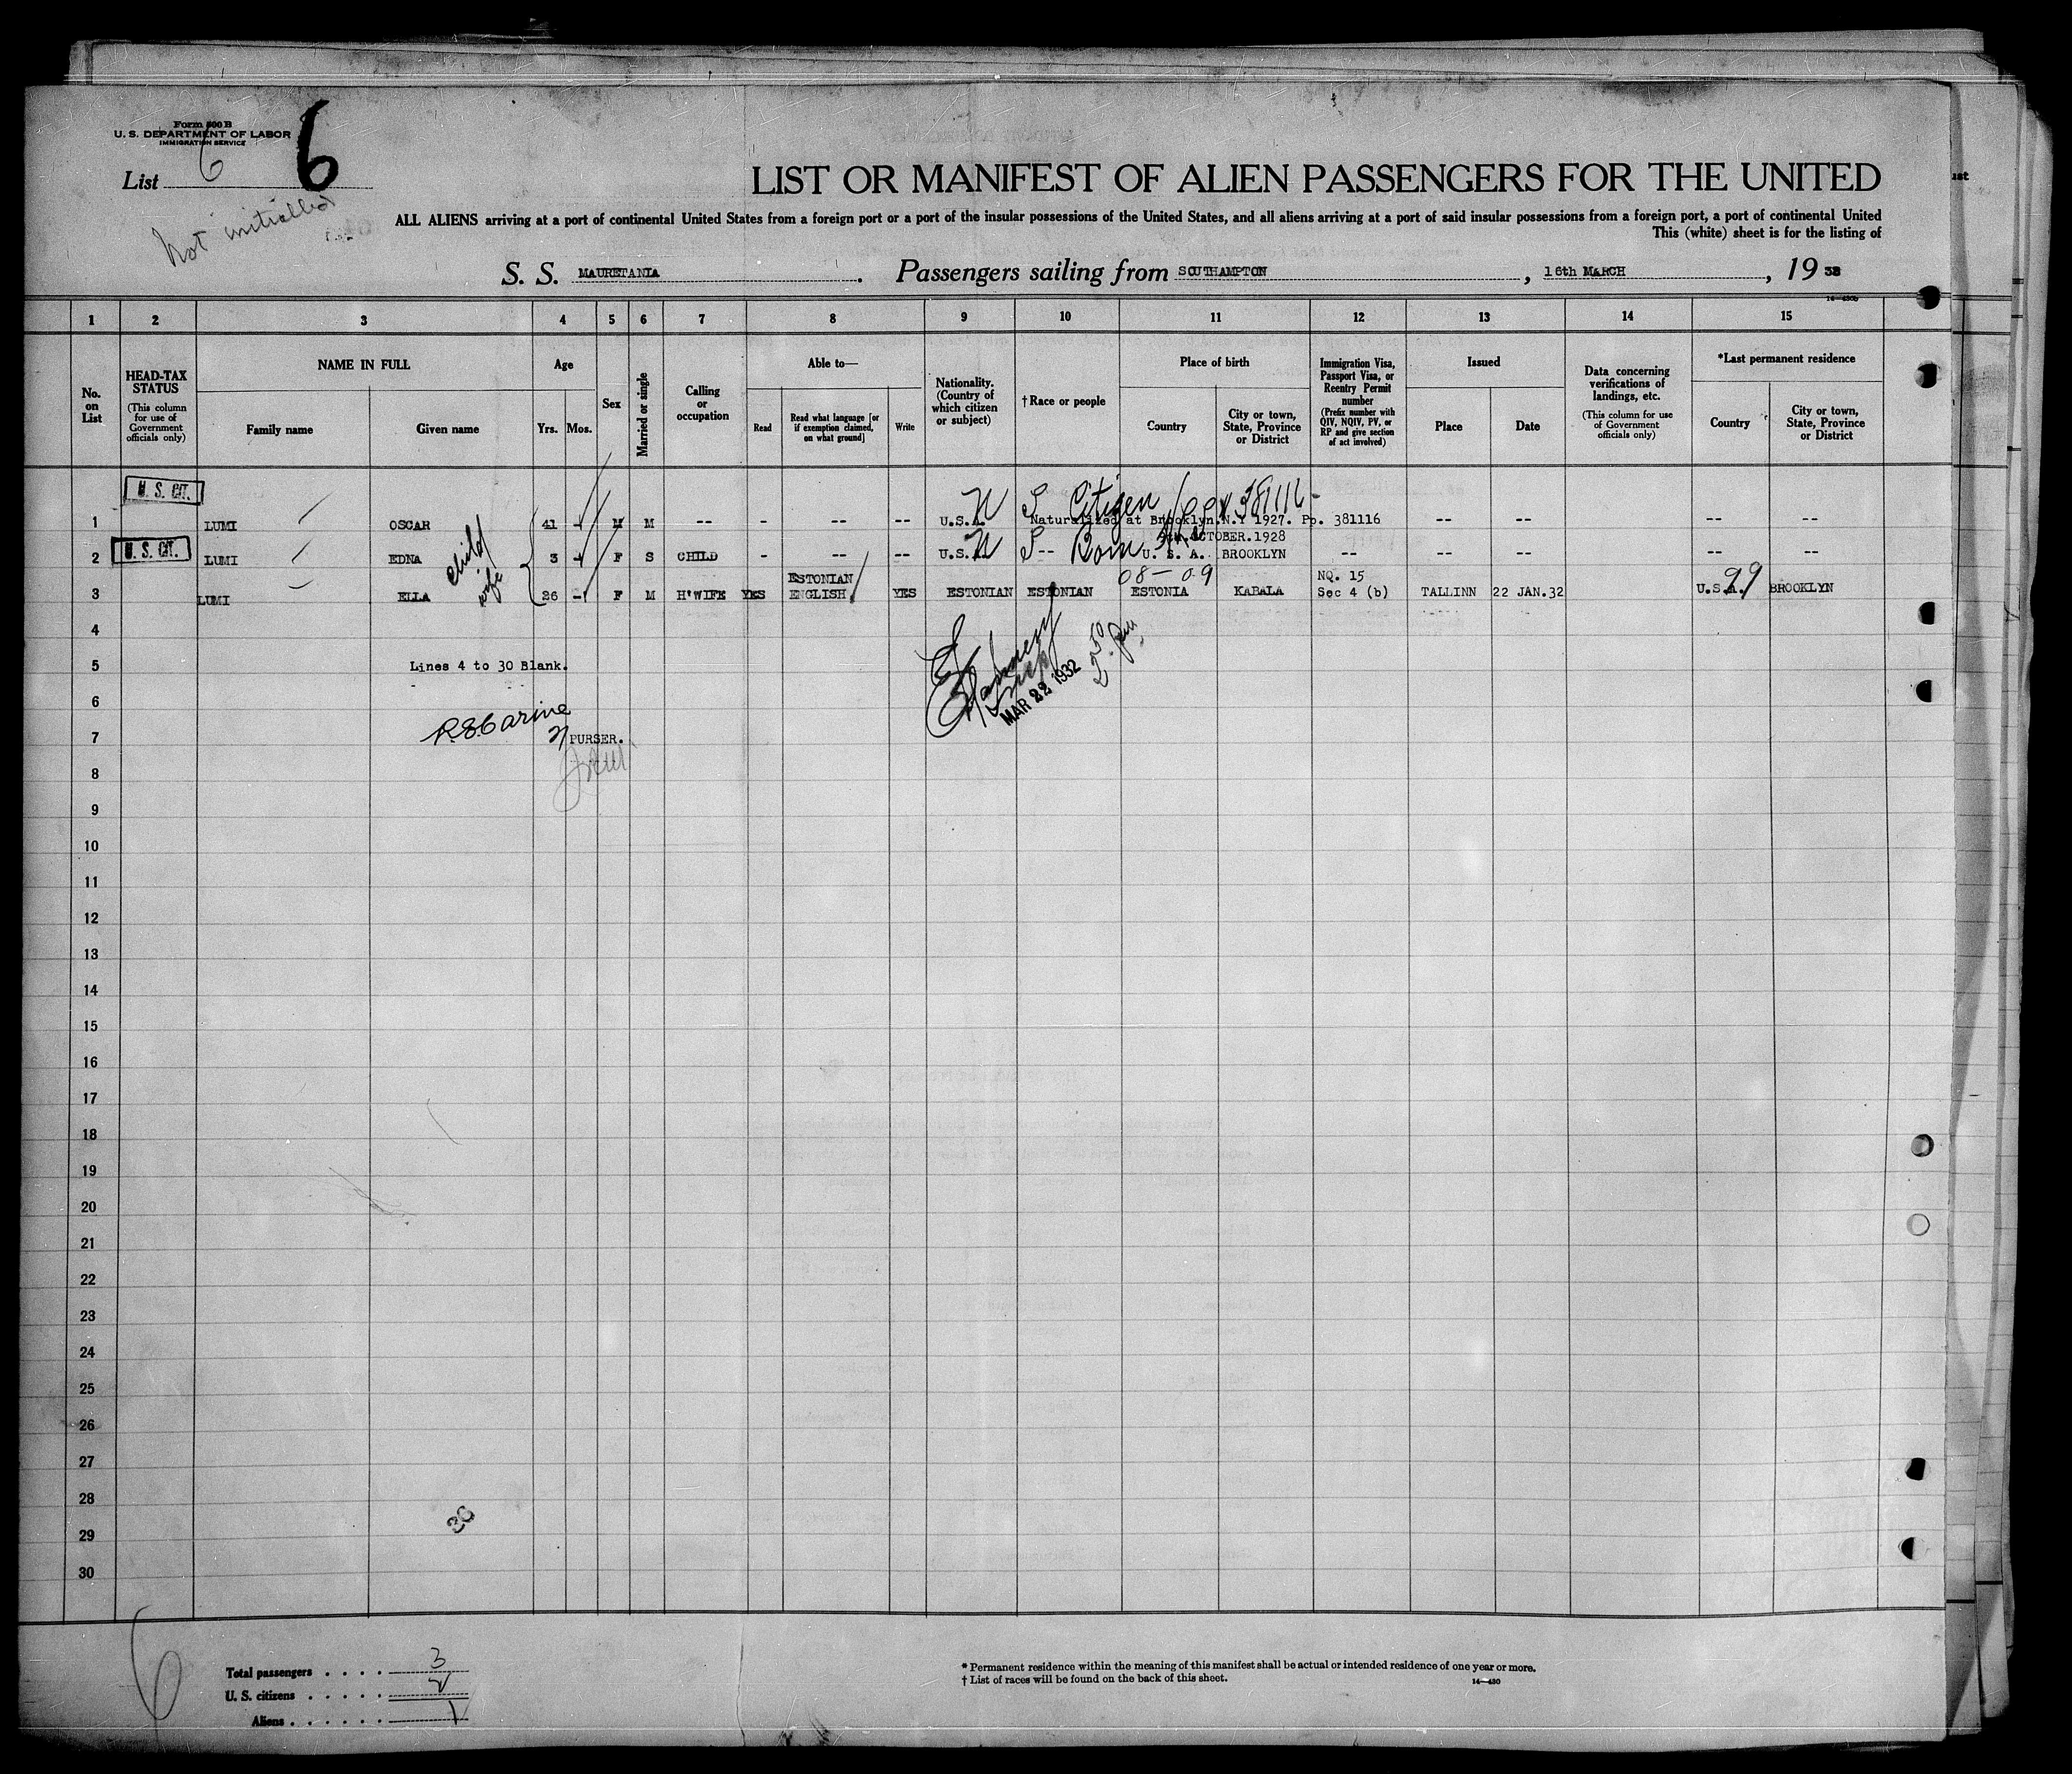 Form 500 B
U. S. DEPARTMENT OF LABOR
IMMIGRATION SERVICE
List 6 6
Not initialled
LIST OR MANIFEST OF ALIEN PASSENGERS FOR THE UNITED
ALL ALIENS arriving at a port of continental United States from a foreign port or a port of the insular possessions of the United States, and all aliens arriving at a port of said insular possessions from a foreign port, a port of continental United
This (white) sheet is for the listing of
S. S. MAURETANIA. Passengers sailing from SOUTHAMPTON, 16th MARCH, 19
1 2 3 4 5 6 7 8 9 10 11 12 13 14 15
No. on List
HEAD-TAX STATUS (This column for use of Government officials only)
NAME IN FULL
Family name
Given name
Age
Yrs. Mos.
Sex
Married or single
Calling or occupation
Able to—
Read
Read what language [or if exemption claimed, on what ground]
Write
Nationality. (Country of which citizen or subject)
†Race or people
Place of birth
Country
City or town, State, Province or District
Immigration Visa, Passport Visa, or Reentry Permit number (Prefix number with QIV, NQIV, PV, or RP and give section of act involved)
Issued
Place
Date
Data concerning verifications of landings, etc. (This column for use of Government officials only)
*Last permanent residence
Country
City or town, State, Province or District
U. S. CIT. Citizen 381116
1 LUMI OSCAR 41 - M M -- - -- -- U.S.A. Naturalized at Brooklyn.N.Y 1927. Pp. 381116 -- -- -- --
OCTOBER.1928
U. S. CIT.
2 LUMI EDNA child 3 - F S CHILD - -- -- U.S.A. -- Born U. S. A. BROOKLYN -- -- -- -- --
ESTONIAN 08 - 09 NQ. 15 99
3 LUMI ELLA wife 26 - F M H'WIFE YES ENGLISH YES ESTONIAN ESTONIAN ESTONIA KABALA Sec 4 (b) TALLINN 22 JAN.32 U.S.A. BROOKLYN
4
5 Lines 4 to 30 Blank.
MAR 22 1932
6
7 PURSER.
8
9
10
11
12
13
14
15
16
17
18
19
20
21
22
23
24
25
26
27
28
29
30
6
Total passengers . . . . 3
U. S. citizens . . . . . 2
Aliens . . . . . . 1
* Permanent residence within the meaning of this manifest shall be actual or intended residence of one year or more.
† List of races will be found on the back of this sheet.
14—430